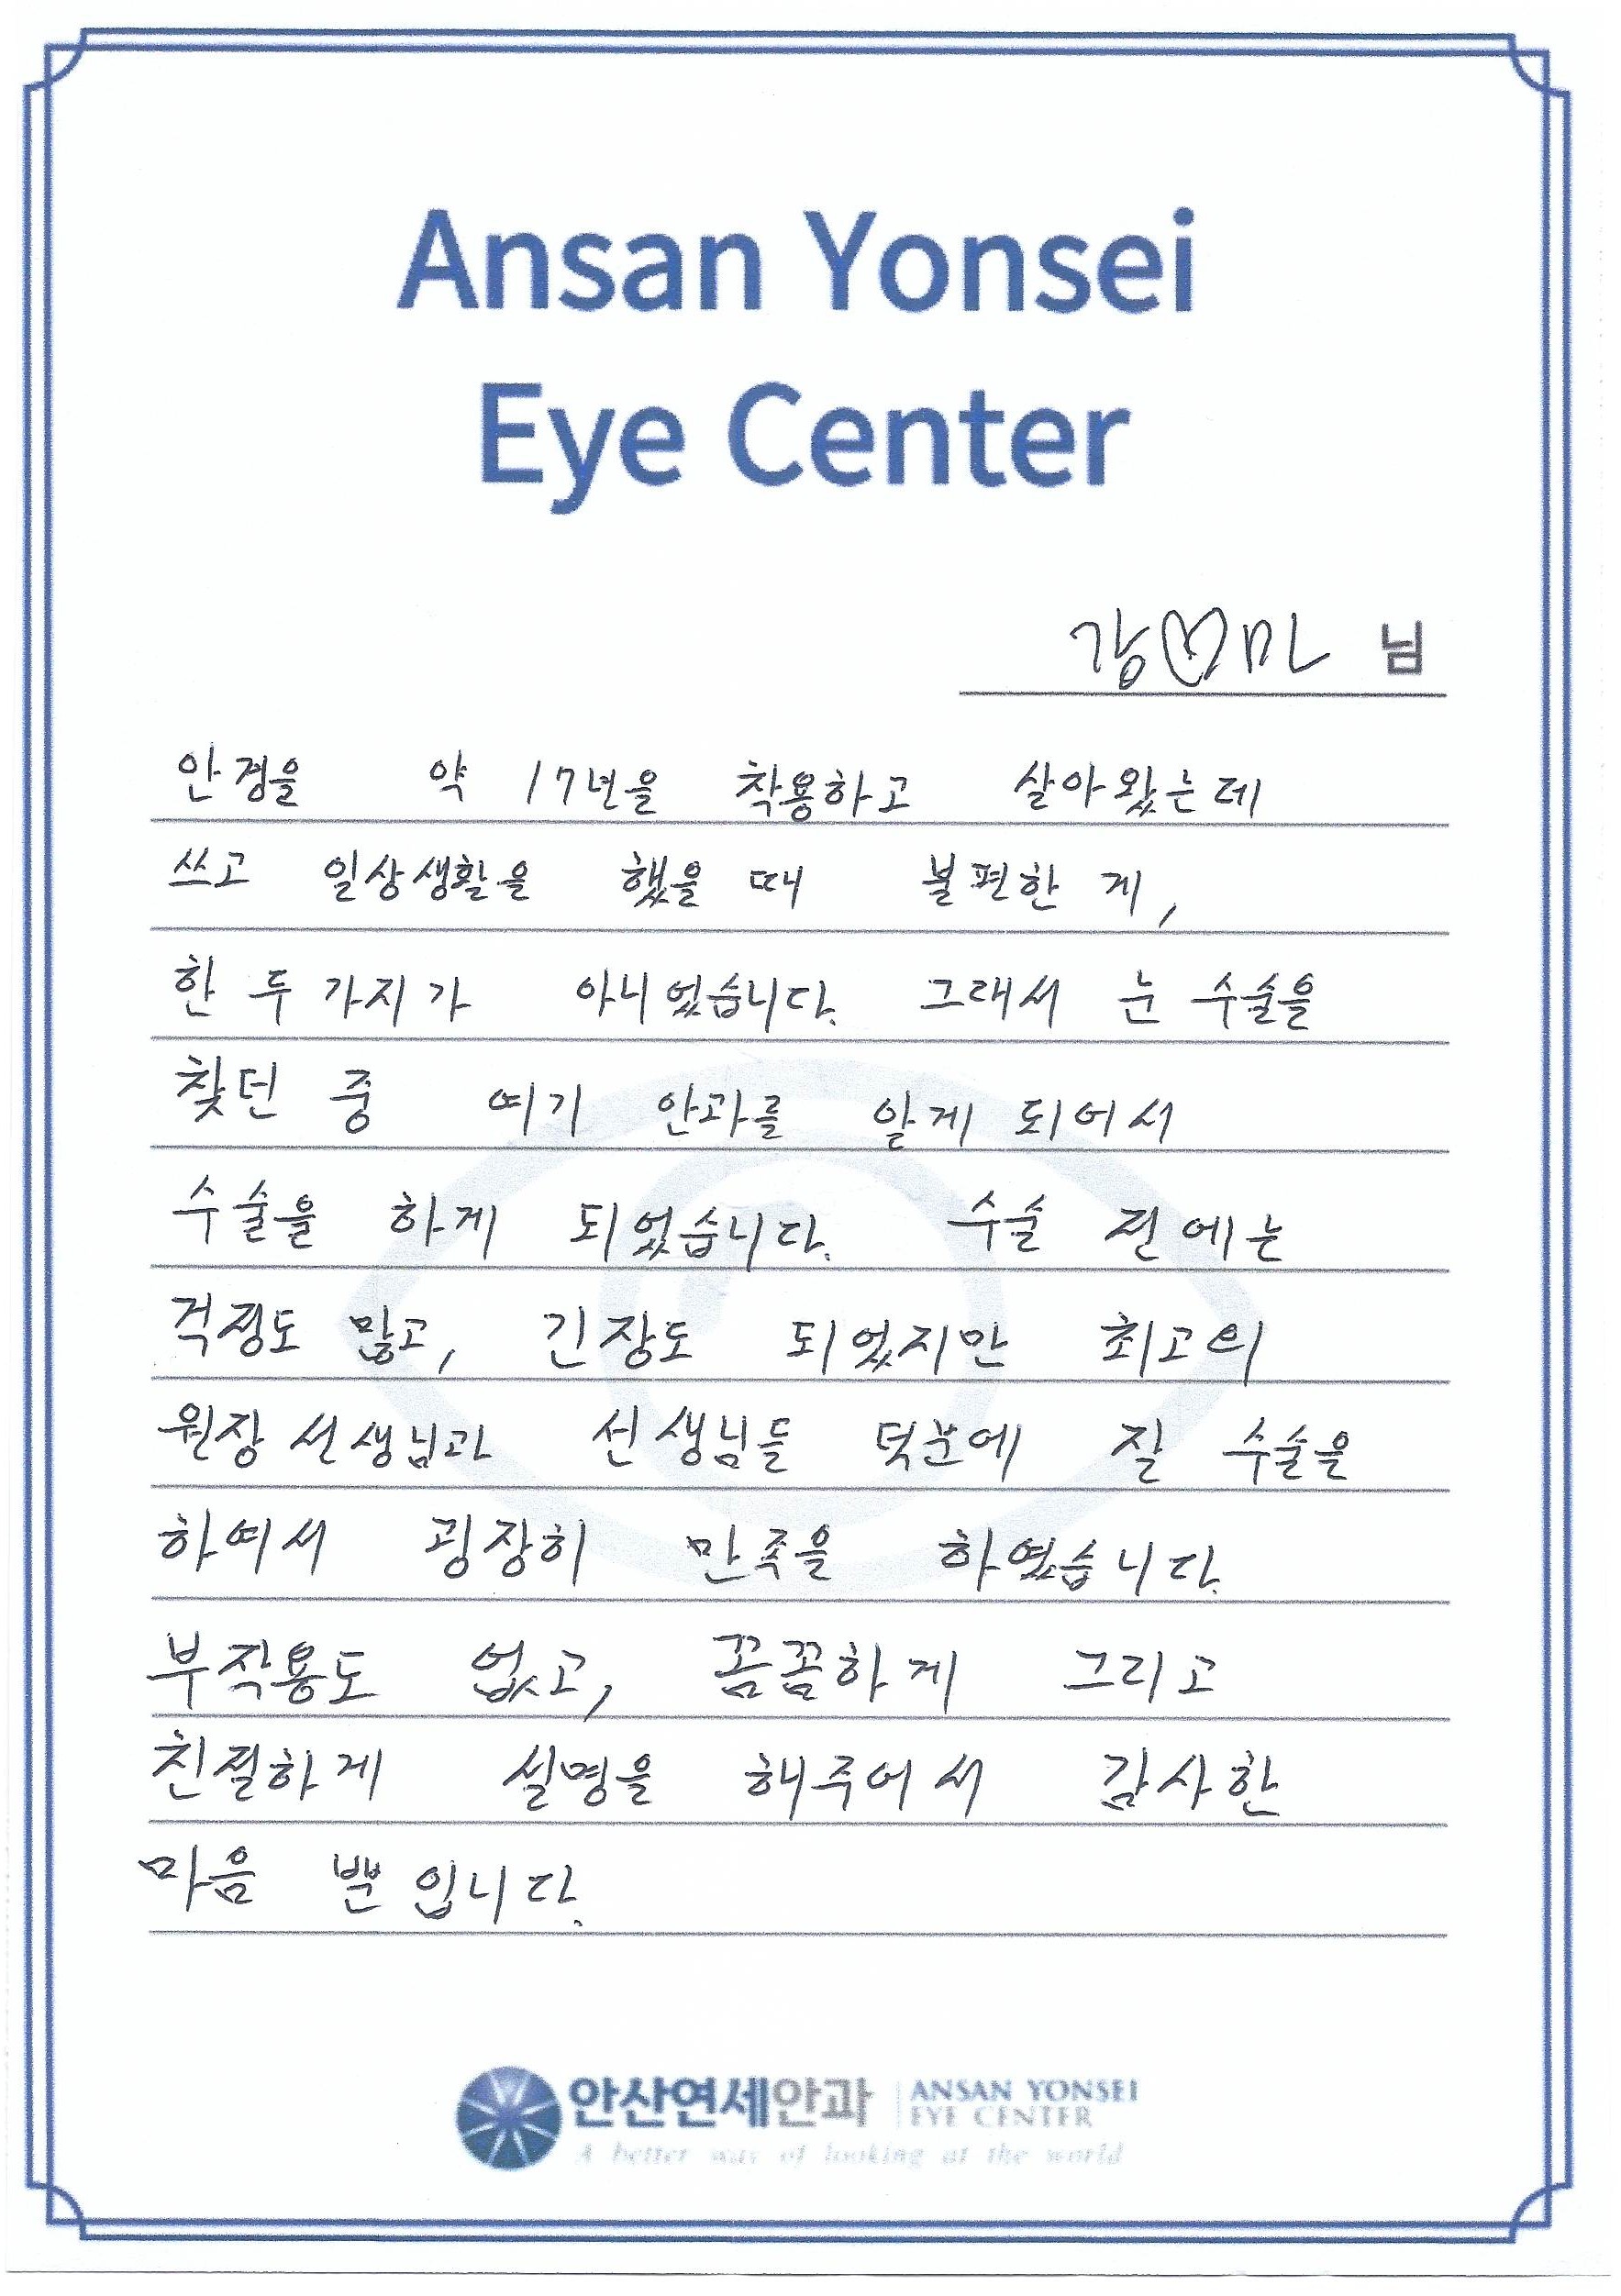 Ansan Yonsei
Eye Center
강♡마 님
안경을 약 17년을 착용하고 살아왔는데
쓰고 일상생활을 했을 때 불편한 게,
한 두 가지가 아니었습니다. 그래서 눈 수술을
찾던 중 여기 안과를 알게 되어서
수술을 하게 되었습니다. 수술 전에는
걱정도 많고, 긴장도 되었지만 최고의
원장 선생님과 선생님들 덕분에 잘 수술을
하여서 굉장히 만족을 하였습니다.
부작용도 없고, 꼼꼼하게 그리고
친절하게 설명을 해주어서 감사한
마음 뿐입니다.
안산연세안과 ANSAN YONSEI
EYE CENTER
A better way of looking at the world